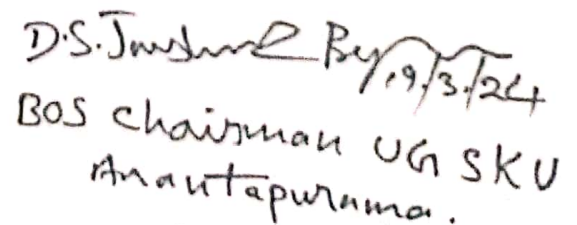 D.S. 19/3/24
BOS Chairman UG SKU
Anantapuramu.